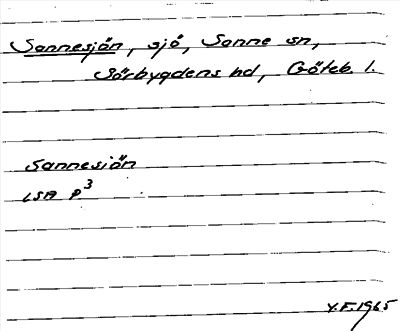 Sannesjön, sjö, Sanne sn,
Sörbygdens hd, Göteb. l.
Sannesjön
LSA P³
V.F. 1965